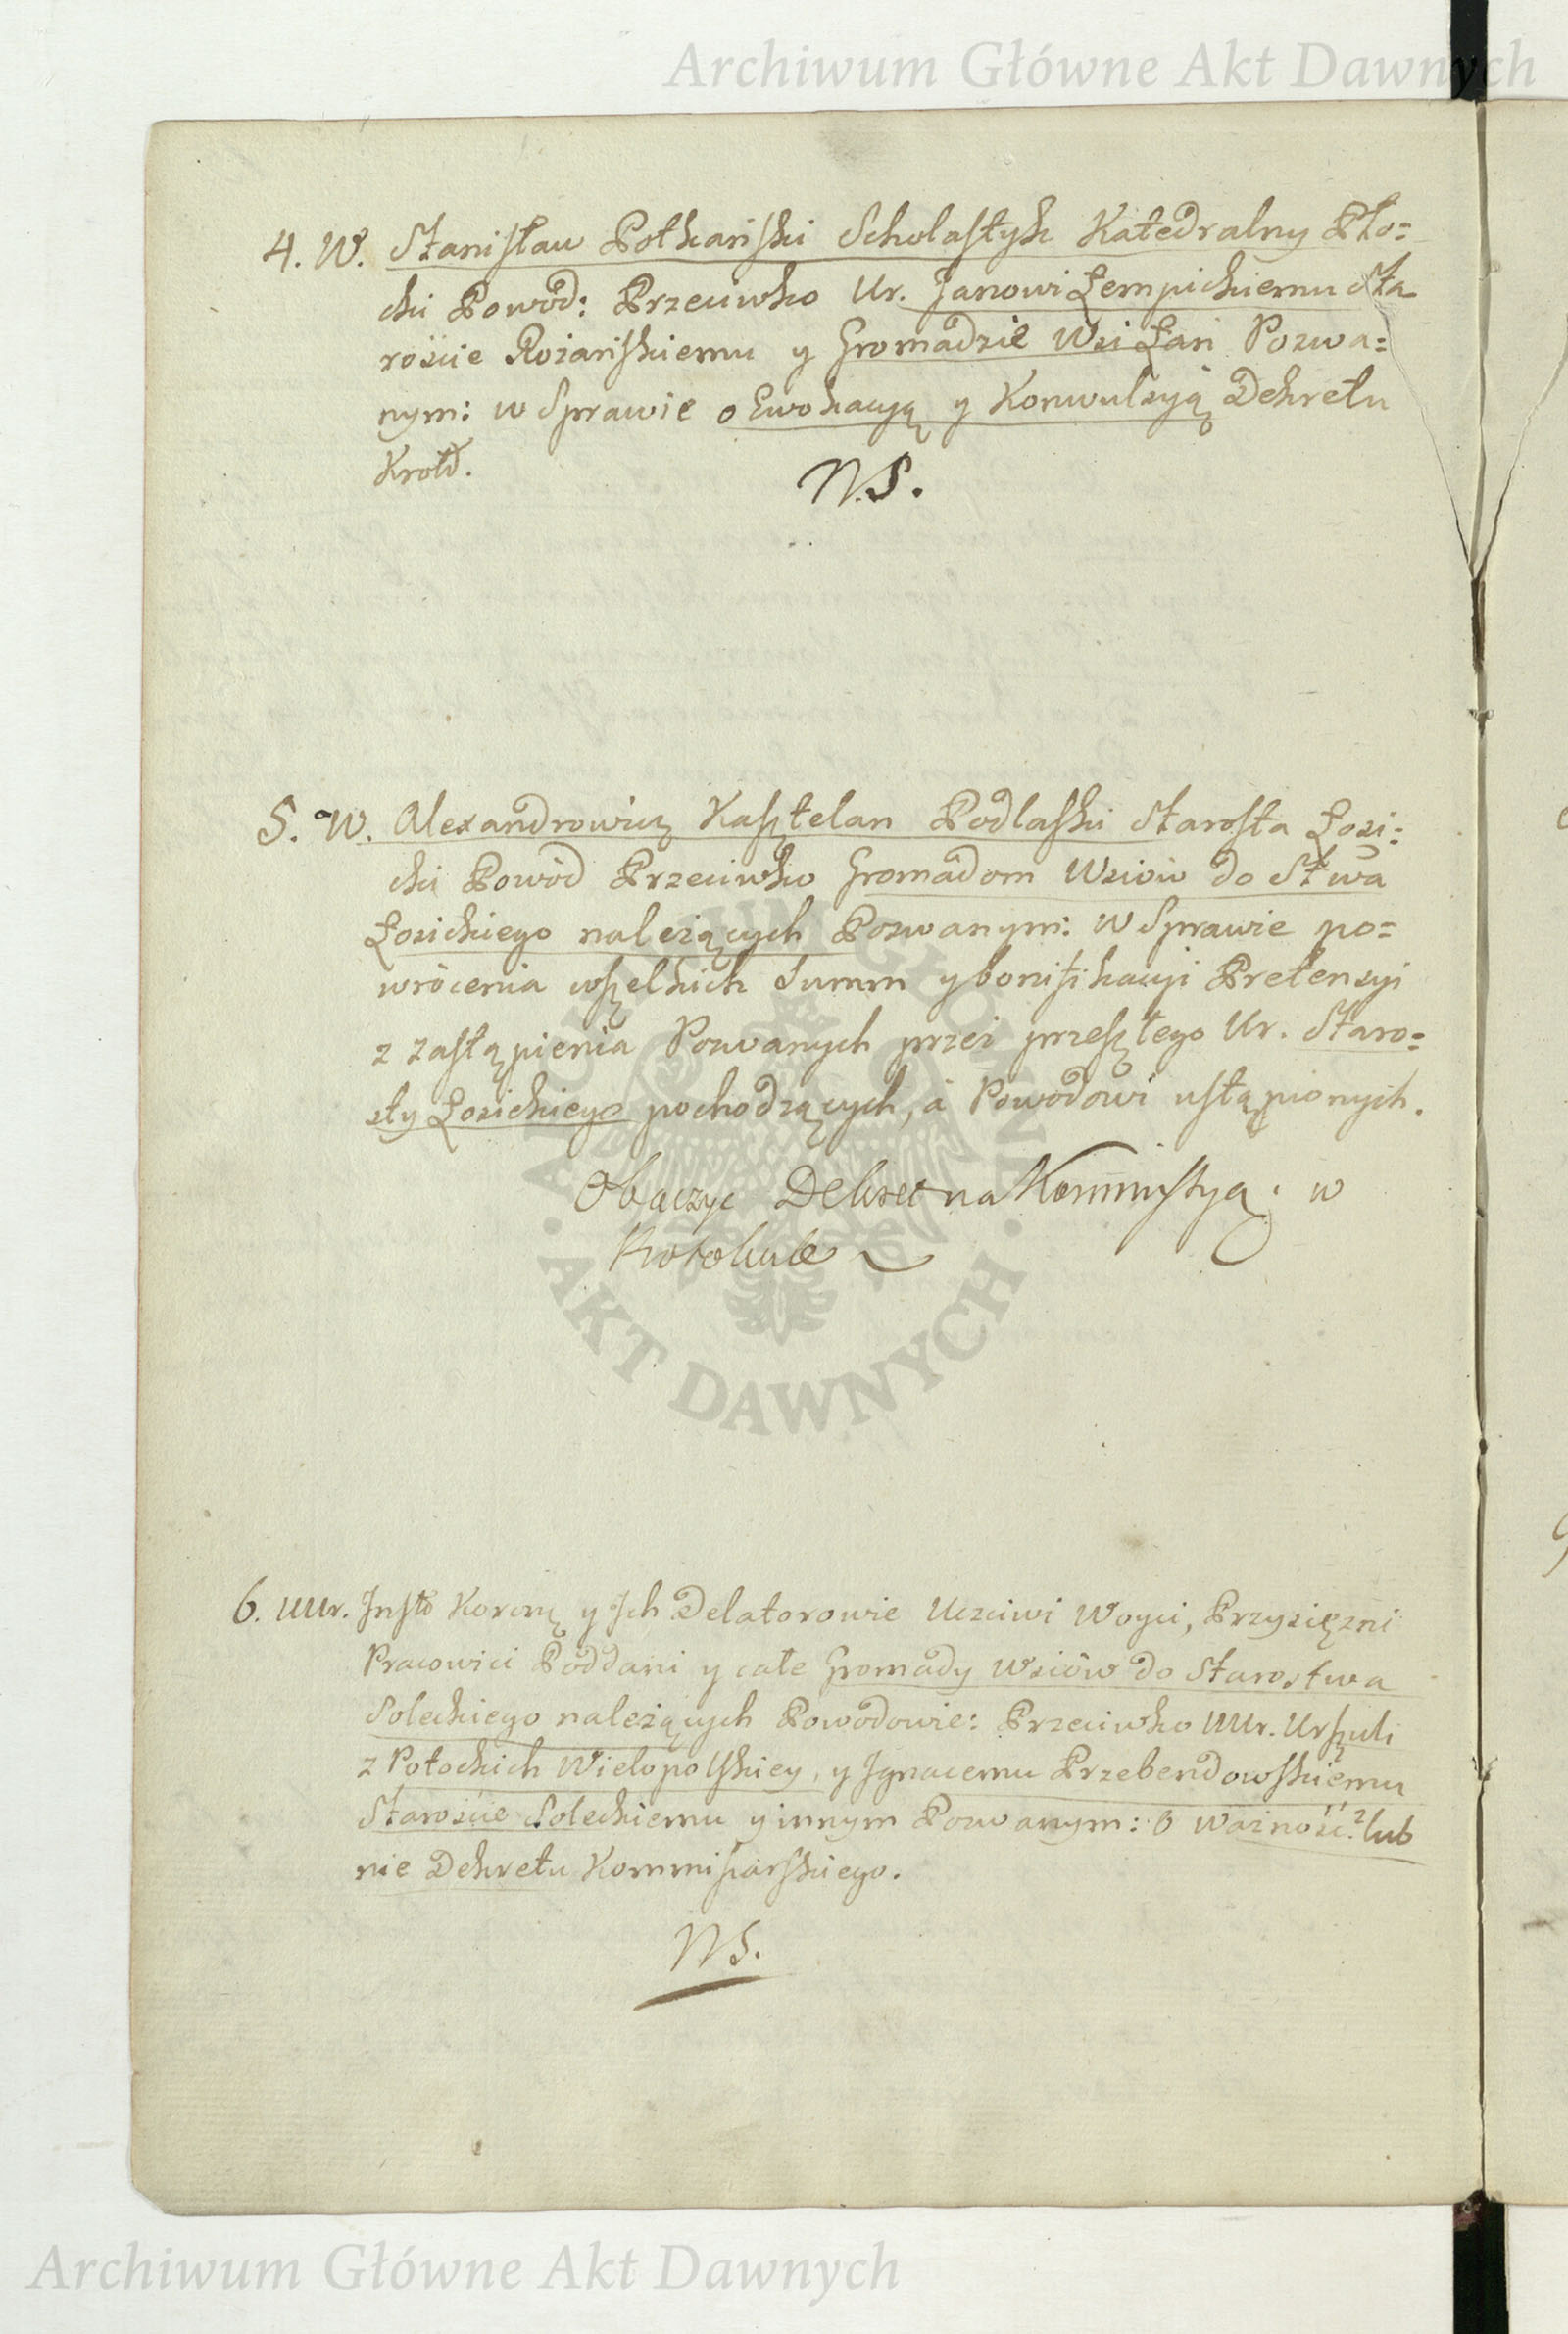 Archiwum Główne Akt Dawnych
4. W. Stanisław Potkański Scholastyk Katedralny Pło=
cki Powod: Przeciwko Ur. Janowi Łempickiemu Sta
roście Rożańskiemu y Gromadzie Wsi Łań Pozwa=
nym: w Sprawie o Ewokacyą y Konwulsyą Dekretu
N.S.
5. W. Alexandrowicz Kasztelan Podlaski Starosta Łosi=
cki Powod Przeciwko Gromadom Wsiów do Stwa
Łosickiego należących Pozwanym: w Sprawie po=
wrócenia wszelkich Summ y bonifikacyi Pretensyi
z zastąpienia Pozwanych przez przeszłego Ur. Staro=
sty Łosickiego pochodzących, à Powodowi ustąpionych.
Obaczyc Dekret na Kommissyą. w
Protokule
6. UUr. Insto Koronę y Ich Delatorowie Uczciwi Woyci, Przysiężni
Pracowici Poddani y całe Gromady Wsiów do Starostwa
Soleckiego należących Powodowie: Przeciwko UUr. Urszuli
z Potockich Wielopolskiey, y Ignacemu Przebendowskiemu
Staroście Soleckiemu y innym Pozwanym: o ważność lub
nie Dekretu Kommissarskiego.
NS.
AKT DAWNYCH
Archiwum Główne Akt Dawnych